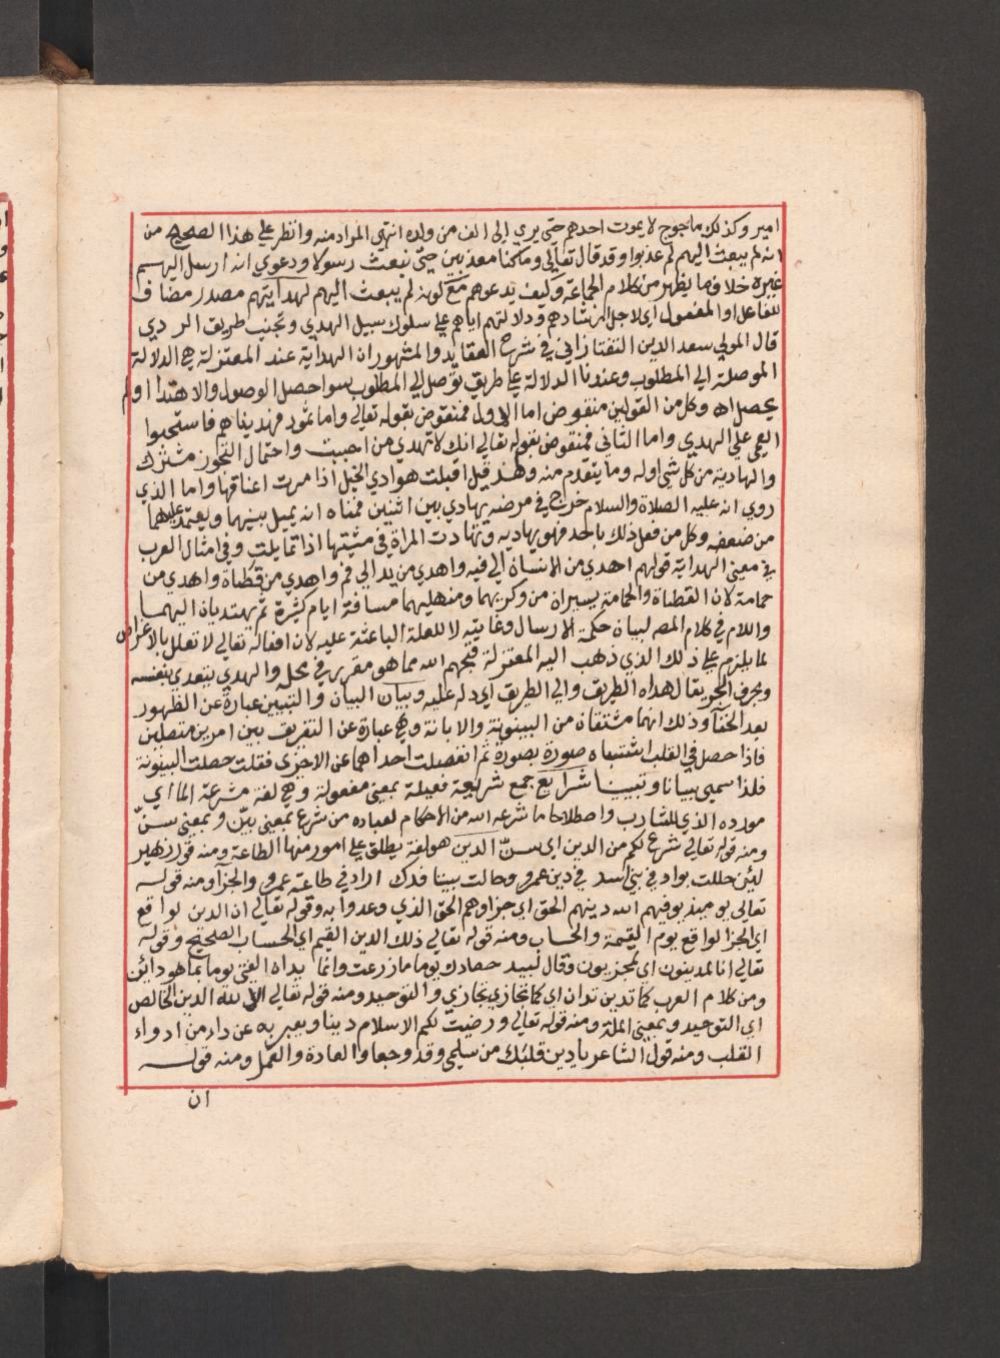 امير وكذلك ماجوج لا يموت احدهم حتى يري الى الف من ولده انتهى المراد منه وانظر على هذا الصحيح من
انه لم يبعث اليهم لم عذبوا وقد قال تعالي وما كنا معذبين حتى نبعث رسولا ودعوي انه ارسل اليهم
غيره خلاف ما يظهر من كلام الجماعة وكيف يدعوهم مع كونه لم يبعث اليهم لهدايتهم مصدر مضاف
للفاعل او المفعول اي لاجل ارشادهم ودلالتهم اياهم على سلوك سبيل الهدي وتجنب طريق الردي
قال المولي سعد الدين التفتازاني في شرح العقايد والمشهور ان الهداية عند المعتزلة هي الدلالة
الموصلة الي المطلوب وعندنا الدلالة على طريق توصل الي المطلوب سوا حصل الوصول والاهتدا اولم
يحصل اه وكل من القولين منقوض اما الاول فمنقوض بقوله تعالي واما ثمود فهديناهم فاستحبوا
العمي علي الهدي واما الثاني فمنقوض بقوله تعالي انك لا تهدي من احببت واحتمال التجوز مشترك
والهادية من كل شي اوله وما يتقدم منه ولهذا قيل اقبلت هوادي الخيل اذا مرت اعناقها واما الذي
روي انه عليه الصلاة والسلام خرج في مرضه يهادي بين اثنين فمعناه انه يميل بينهما ويعتمد عليهما
من ضعفه وكل من فعل ذلك باحد فهو يهاديه وتهادت المراة في مشيتها اذا تمايلت وفي امثال العرب
في معني الهداية قولهم اهدي من الانسان الي فيه واهدي من يد الي فم واهدي من قطاة واهدي من
حمامة لان القطاة والحمامة يسيران من وكريهما ومنهليهما مسافة ايام كثيرة ثم يهتديان اليهما
واللام في كلام المصـ لبيان حكمة الارسال وغايته لا للعلة الباعثة عليه لان افعاله تعالي لا تعلل بالاغراض
لما يلزم علي ذلك الذي ذهب اليه المعتزلة قبحهم الله مما هو مقرر في محله والهدي يتعدي بنفسه
وبحرف الجر يقال هداه الطريق والي الطريق اي دله عليه وبيان البيان والتبيين عبارة عن الظهور
بعد الخفآ وذلك انهما مشتقان من البينونة والابانة وهي عبارة عن التفريق بين امرين متصلين
فاذا حصل في القلب اشتباه صورة بصورة ثم انفصلت احداهما عن الاخري فقلت حصلت البينونة
فلذا سمي بيانا وتبيينا شرايع جمع شريعة فعيلة بمعني مفعولة وهي لغة مشرعة الما اي
مورده الذي للشارب واصطلاحا ما شرعه الله من الاحكام لعباده من شرع بمعني بيّن وبمعني سنّ
ومنه قوله تعالي شرع لكم من الدين اي سنّ الدين هو لغة يطلق علي امور منها الطاعة ومنه قول زهير
لئن حللت بواد في بني اسد في دين عمرو وحالت بيننا فدك اراد في طاعة عمرو والجزآ ومنه قوله
تعالي يوميذ يوفيهم الله دينهم الحق اي جزاوهم الحق الذي وعدوا به وقوله تعالي ان الدين لواقع
اي الجزا لواقع يوم القيمة والحساب ومنه قوله تعالي ذلك الدين القيم اي الحساب الصحيح وقوله
تعالي انا لمدينون اي لمجزيون وقال لبيد حصادك يوما ما زرعت وانما يدان الفتي يوما بما هو دائن
ومن كلام العرب كما تدين تدان اي كما تجازي تجازي والتوحيد ومنه قوله تعالي الا لله الدين الخالص
اي التوحيد وبمعني الملة ومنه قوله تعالي ورضيت لكم الاسلام دينا ويعبر به عن داء من ادواء
القلب ومنه قول الشاعر يا دين قلبك من سلمي وقد وجعا والعادة والعمل ومنه قوله
ان